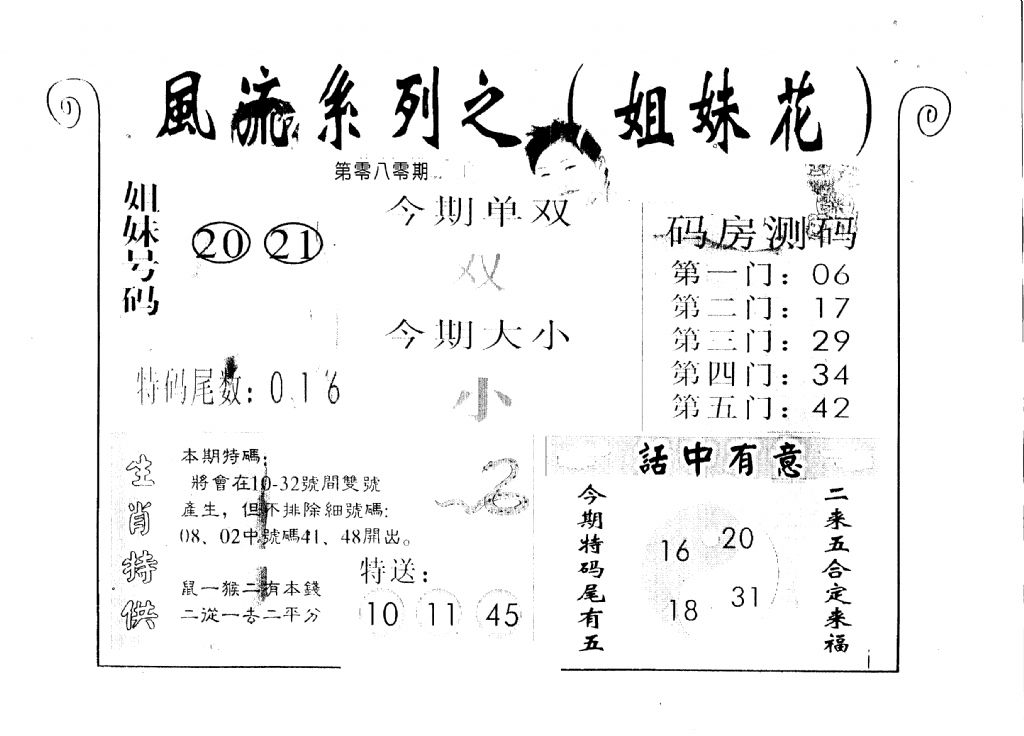 風流系列之（姐妹花）
第零八零期
姐妹号码
20 21
今期单双
双
今期大小
小
特码尾数：0.1 6
码房测码
第一门：06
第二门：17
第三门：29
第四门：34
第五门：42
生肖持供
本期特碼；
將會在10-32號間雙號
產生，但不排除細號碼:
08、02中號碼41、48開出。
鼠一猴二有本錢
二從一去二平分
特送：
10 11 45
話中有意
今期特码尾有五
16 20
18 31
二来五合定来福